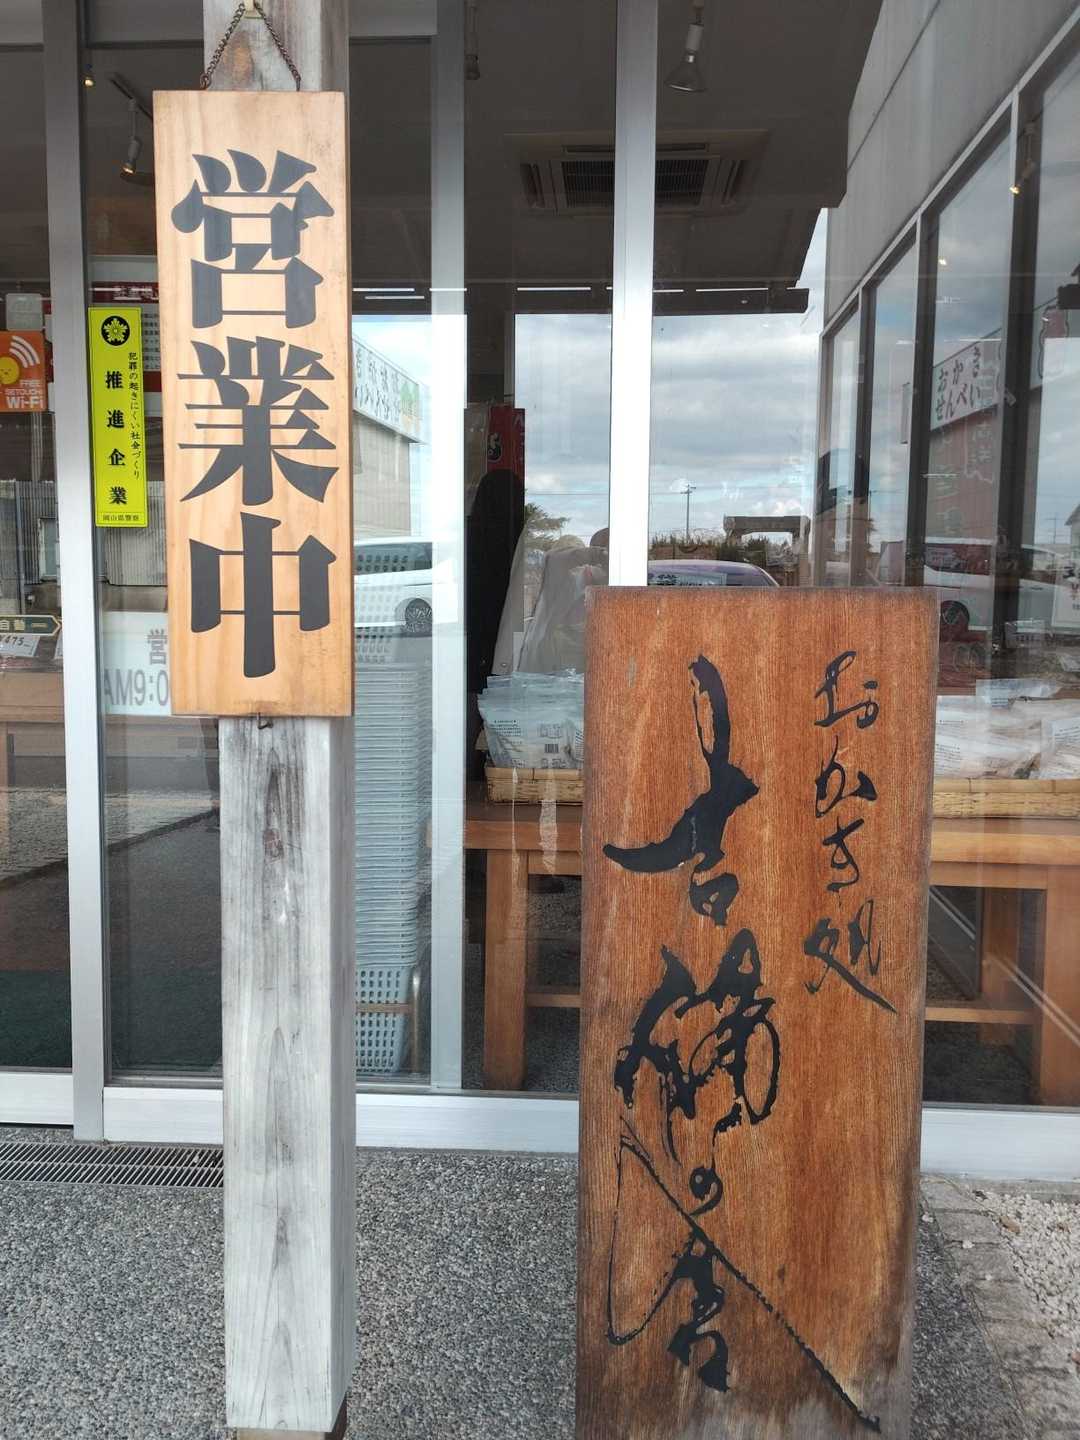 営業中
犯罪の起きにくい社会づくり
推進企業
岡山県警察
FREE
SETOUCHI
Wi-Fi
自動
¥475
営
AM9:0
おかき
せんべい
おかき処
吉備の舎